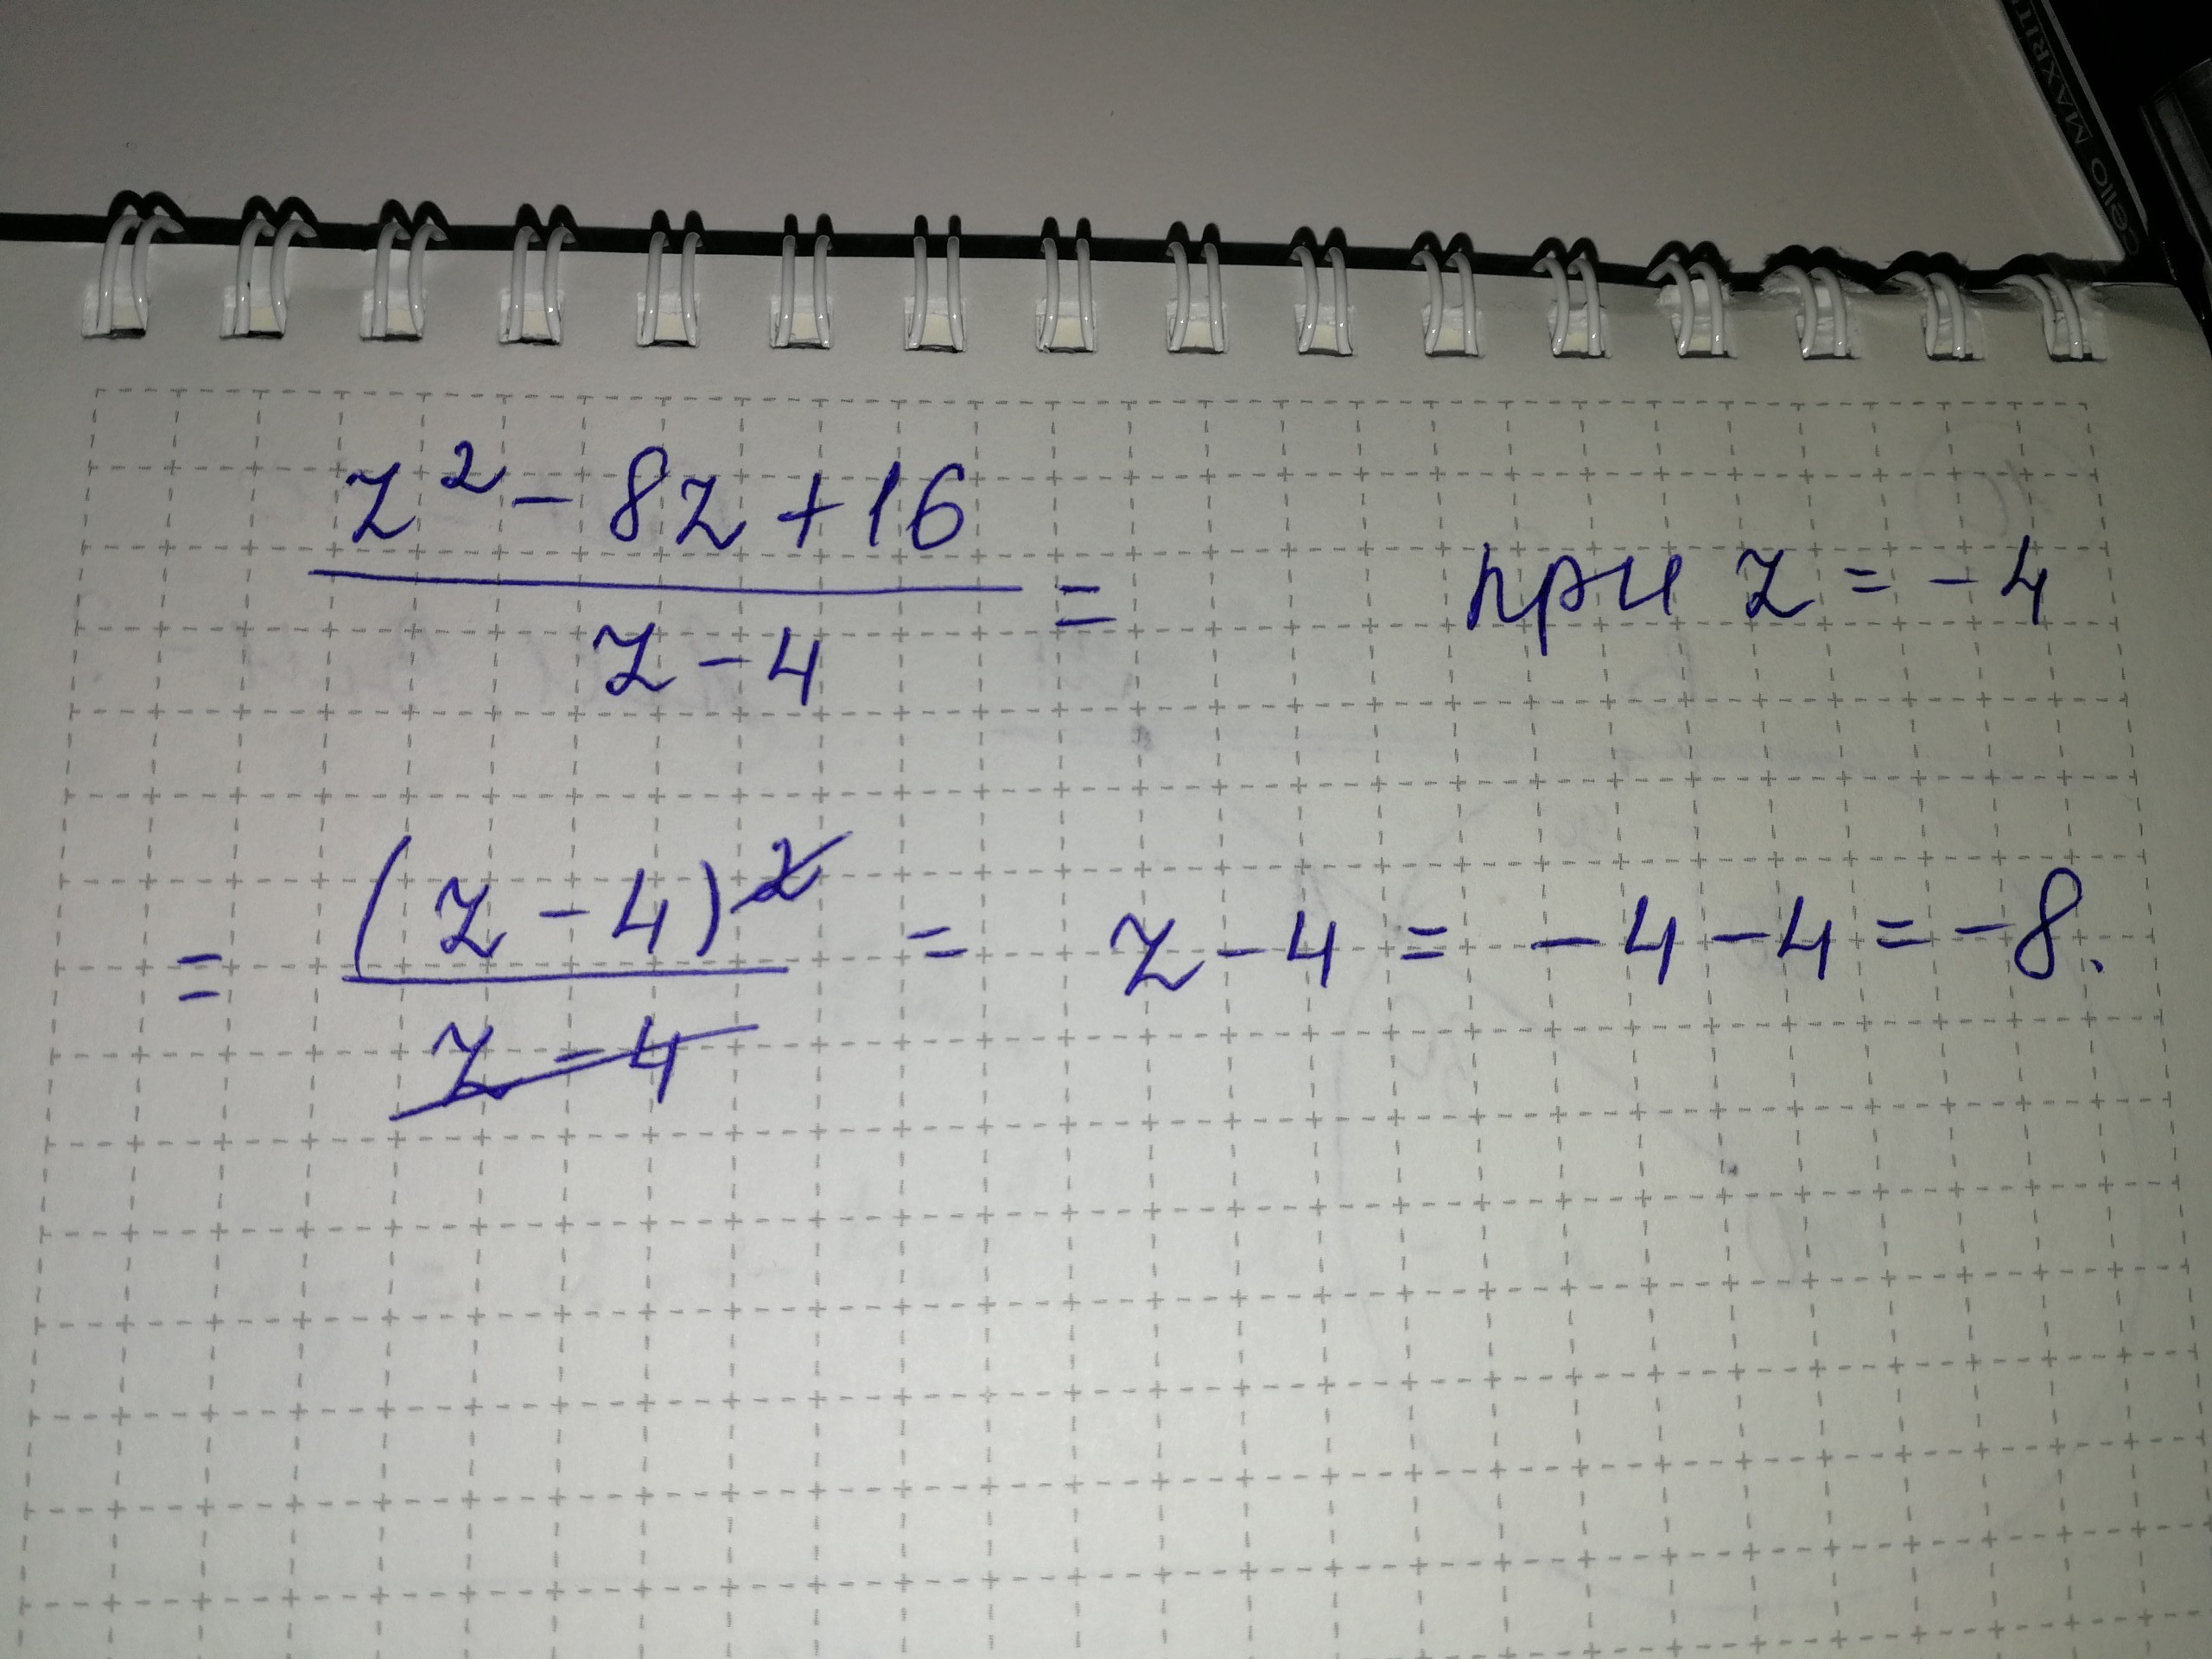 cello MAXRITE
z² - 8z + 16
z - 4
= при z = -4
= (z - 4)²
z - 4
= z - 4 = -4 - 4 = -8.